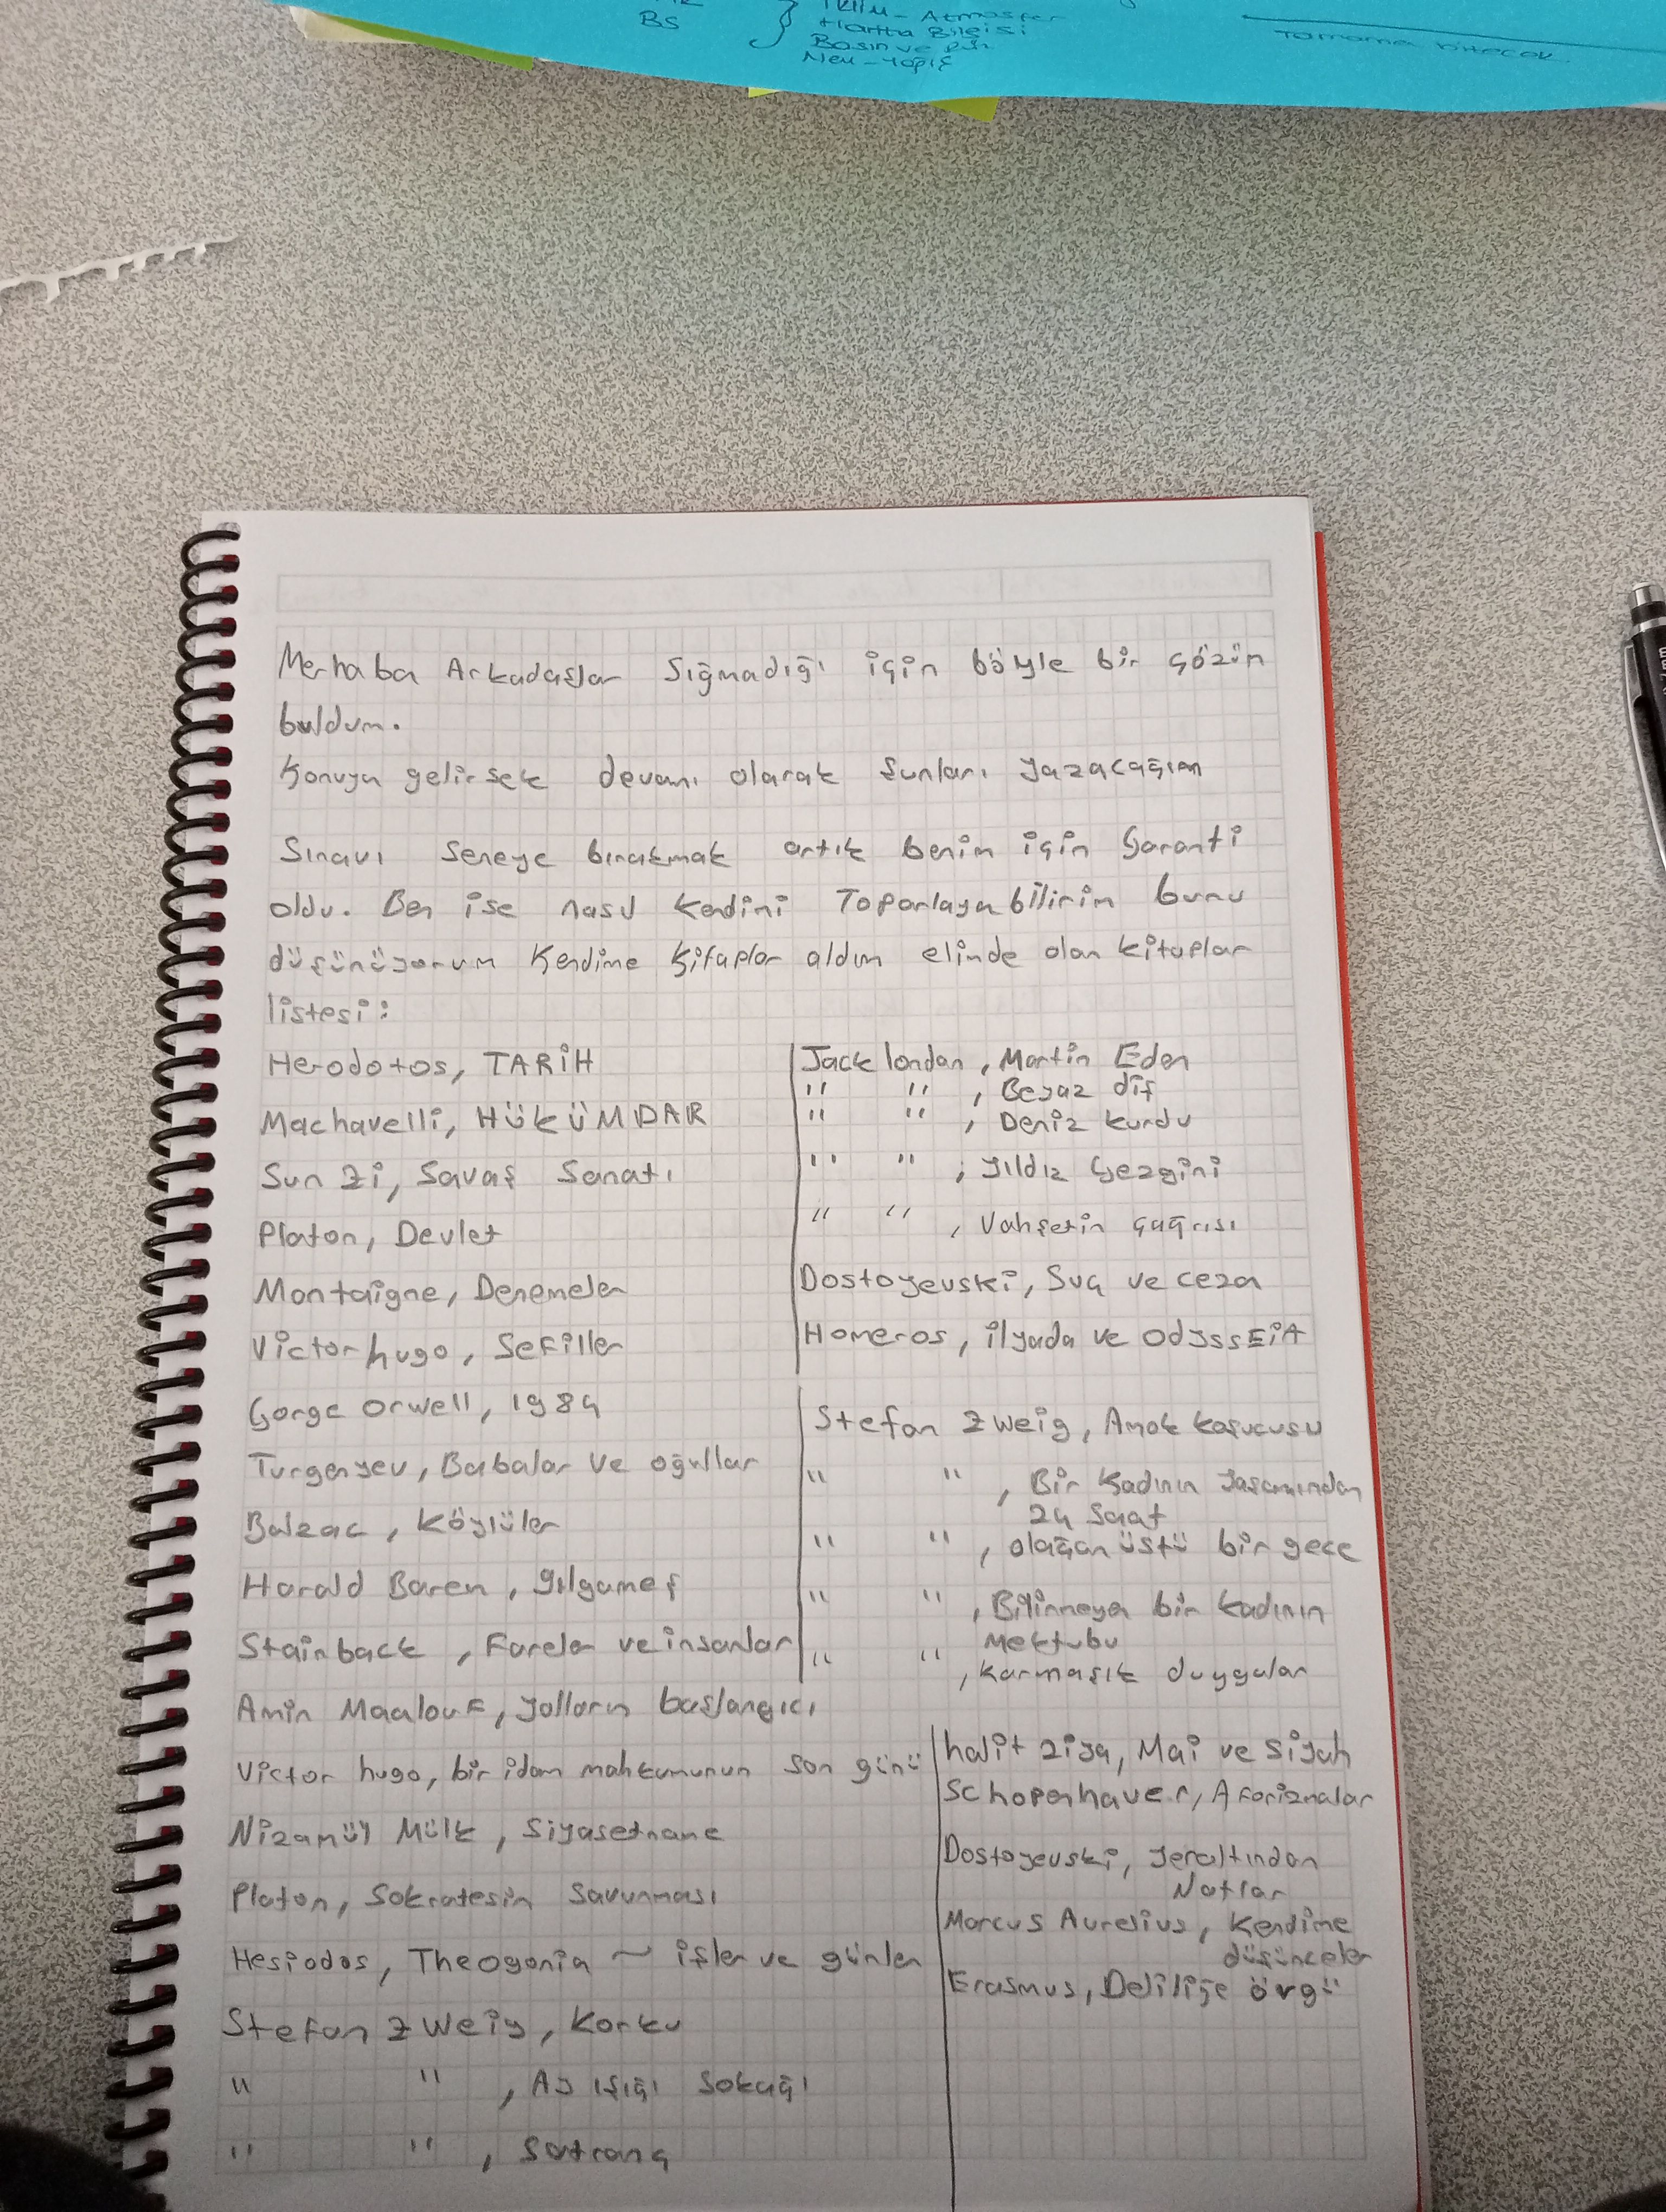 BS
İklim - Atmosfer
Harita Bilgisi
Basınç ve
Tamamı bitecek.
Merhaba Arkadaşlar Sığmadığı için böyle bir çözüm
buldum.
Konuya gelirsek devamı olarak şunları yazacağım
Sınavı seneye bırakmak artık benim için Garanti
oldu. Ben ise nasıl kendimi Toparlayabilirim bunu
düşünüyorum Kendime kitaplar aldım elimde olan kitaplar
listesi:
Herodotos, TARİH
Machavelli, HÜKÜMDAR
Sun Zi, Savaş Sanatı
Platon, Devlet
Montaigne, Denemeler
Victor hugo, Sefiller
Gorge orwell, 1984
Turgenyev, Babalar ve oğullar
Balzac, Köylüler
Harald Baren, gılgameş
Stainback, Fareler ve insanlar
Amin Maalouf, yolların başlangıcı
Victor hugo, bir idam mahkumunun son günü
Nizamül Mülk, Siyasetname
Platon, Sokratesin Savunması
Hesiodos, Theogonia ~ işler ve günler
Stefan Zweig, Korku
" " , Ay ışığı Sokağı
" " , Satranç
Jack london, Martin Eden
" " , Beyaz diş
" " , Deniz kurdu
" " , yıldız Gezgini
" " , Vahşetin çağrısı
Dostoyevski, Suç ve ceza
Homeros, ilyada ve ODYSSEİA
Stefan Zweig, Amok koşucusu
" " , Bir Kadının Yaşamından
24 Saat
" " , olağanüstü bir gece
" " , Bilinmeyen bir kadının
Mektubu
" " , Karmaşık duygular
halit ziya, Mai ve Siyah
Schopenhauer, Aforizmalar
Dostoyevski, yeraltından
Notlar
Marcus Aurelius, Kendime
düşünceler
Erasmus, Deliliğe övgü